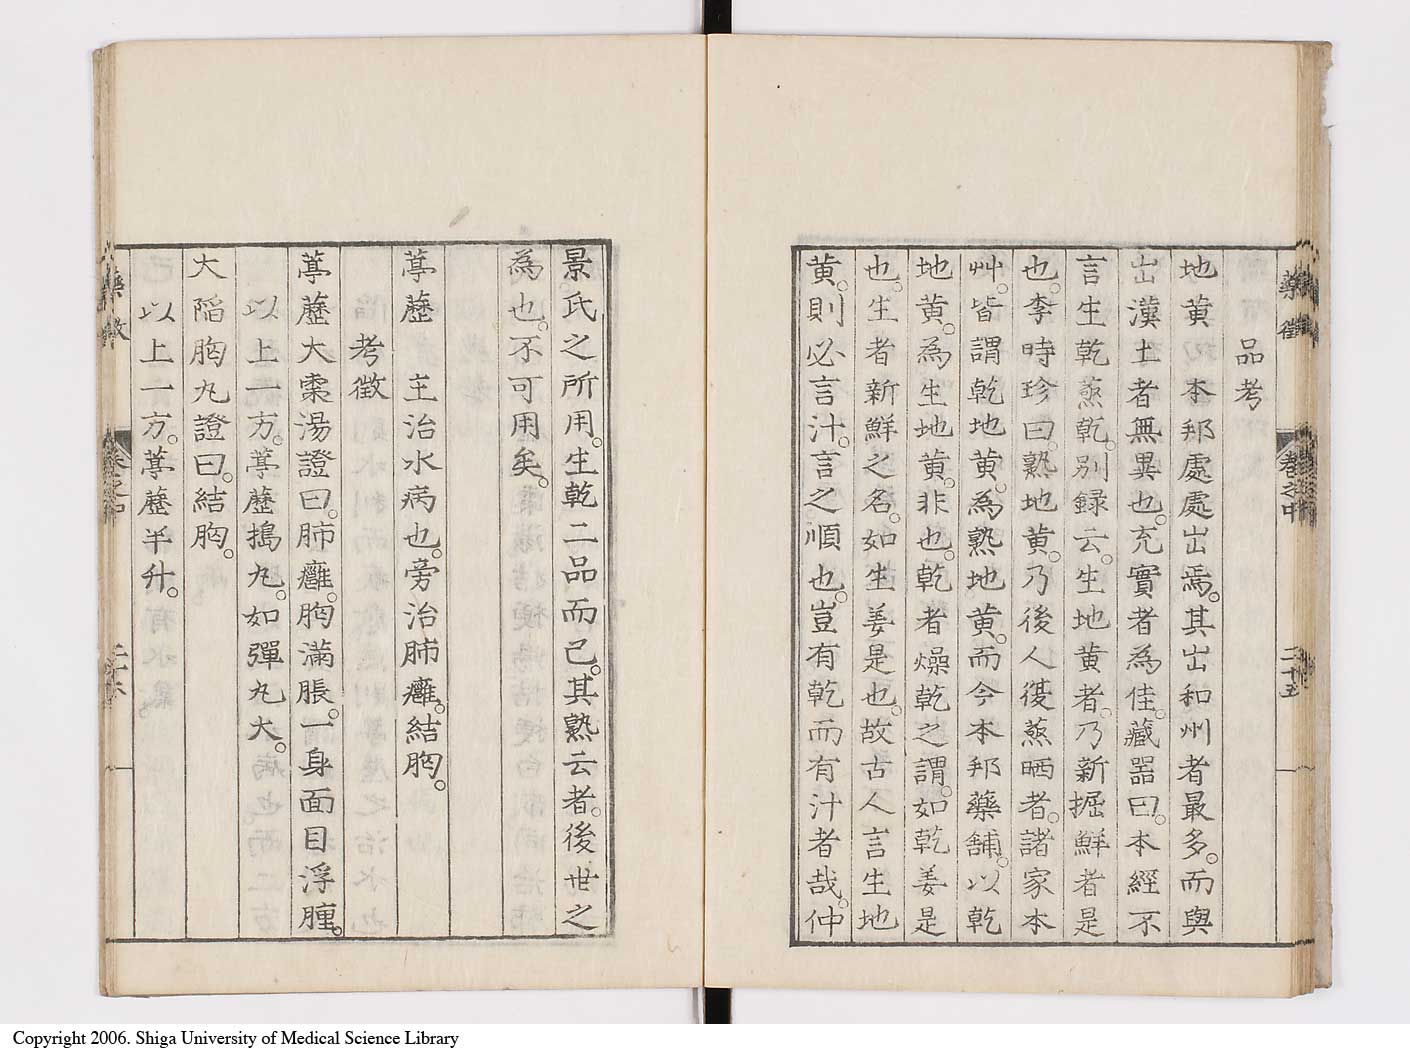 藥徵 卷之中 二十五
品考
地黄 本邦處處出焉。其出和州者最多。而與
出漢土者無異也。充實者為佳。藏器曰。本經不
言生乾蒸乾。別録云。生地黄者。乃新掘鮮者是
也。李時珍曰。熟地黄。乃後人復蒸晒者。諸家本
艸。皆謂乾地黄。為熟地黄。而今本邦藥舖。以乾
地黄。為生地黄。非也。乾者燥乾之謂。如乾姜是
也。生者新鮮之名。如生姜是也。故古人言生地
黄。則必言汁。言之順也。豈有乾而有汁者哉。仲
景氏之所用。生乾二品而已。其熟云者。後世之
為也。不可用矣。
葶藶 主治水病也。旁治肺癰。結胸。
考徵
葶藶大棗湯證曰。肺癰。胸滿脹。一身面目浮腫。
以上一方。葶藶搗丸。如彈丸大。
大陷胸丸證曰。結胸。
以上一方。葶藶半升。
藥徵 卷之中 二十六
Copyright 2006. Shiga University of Medical Science Library